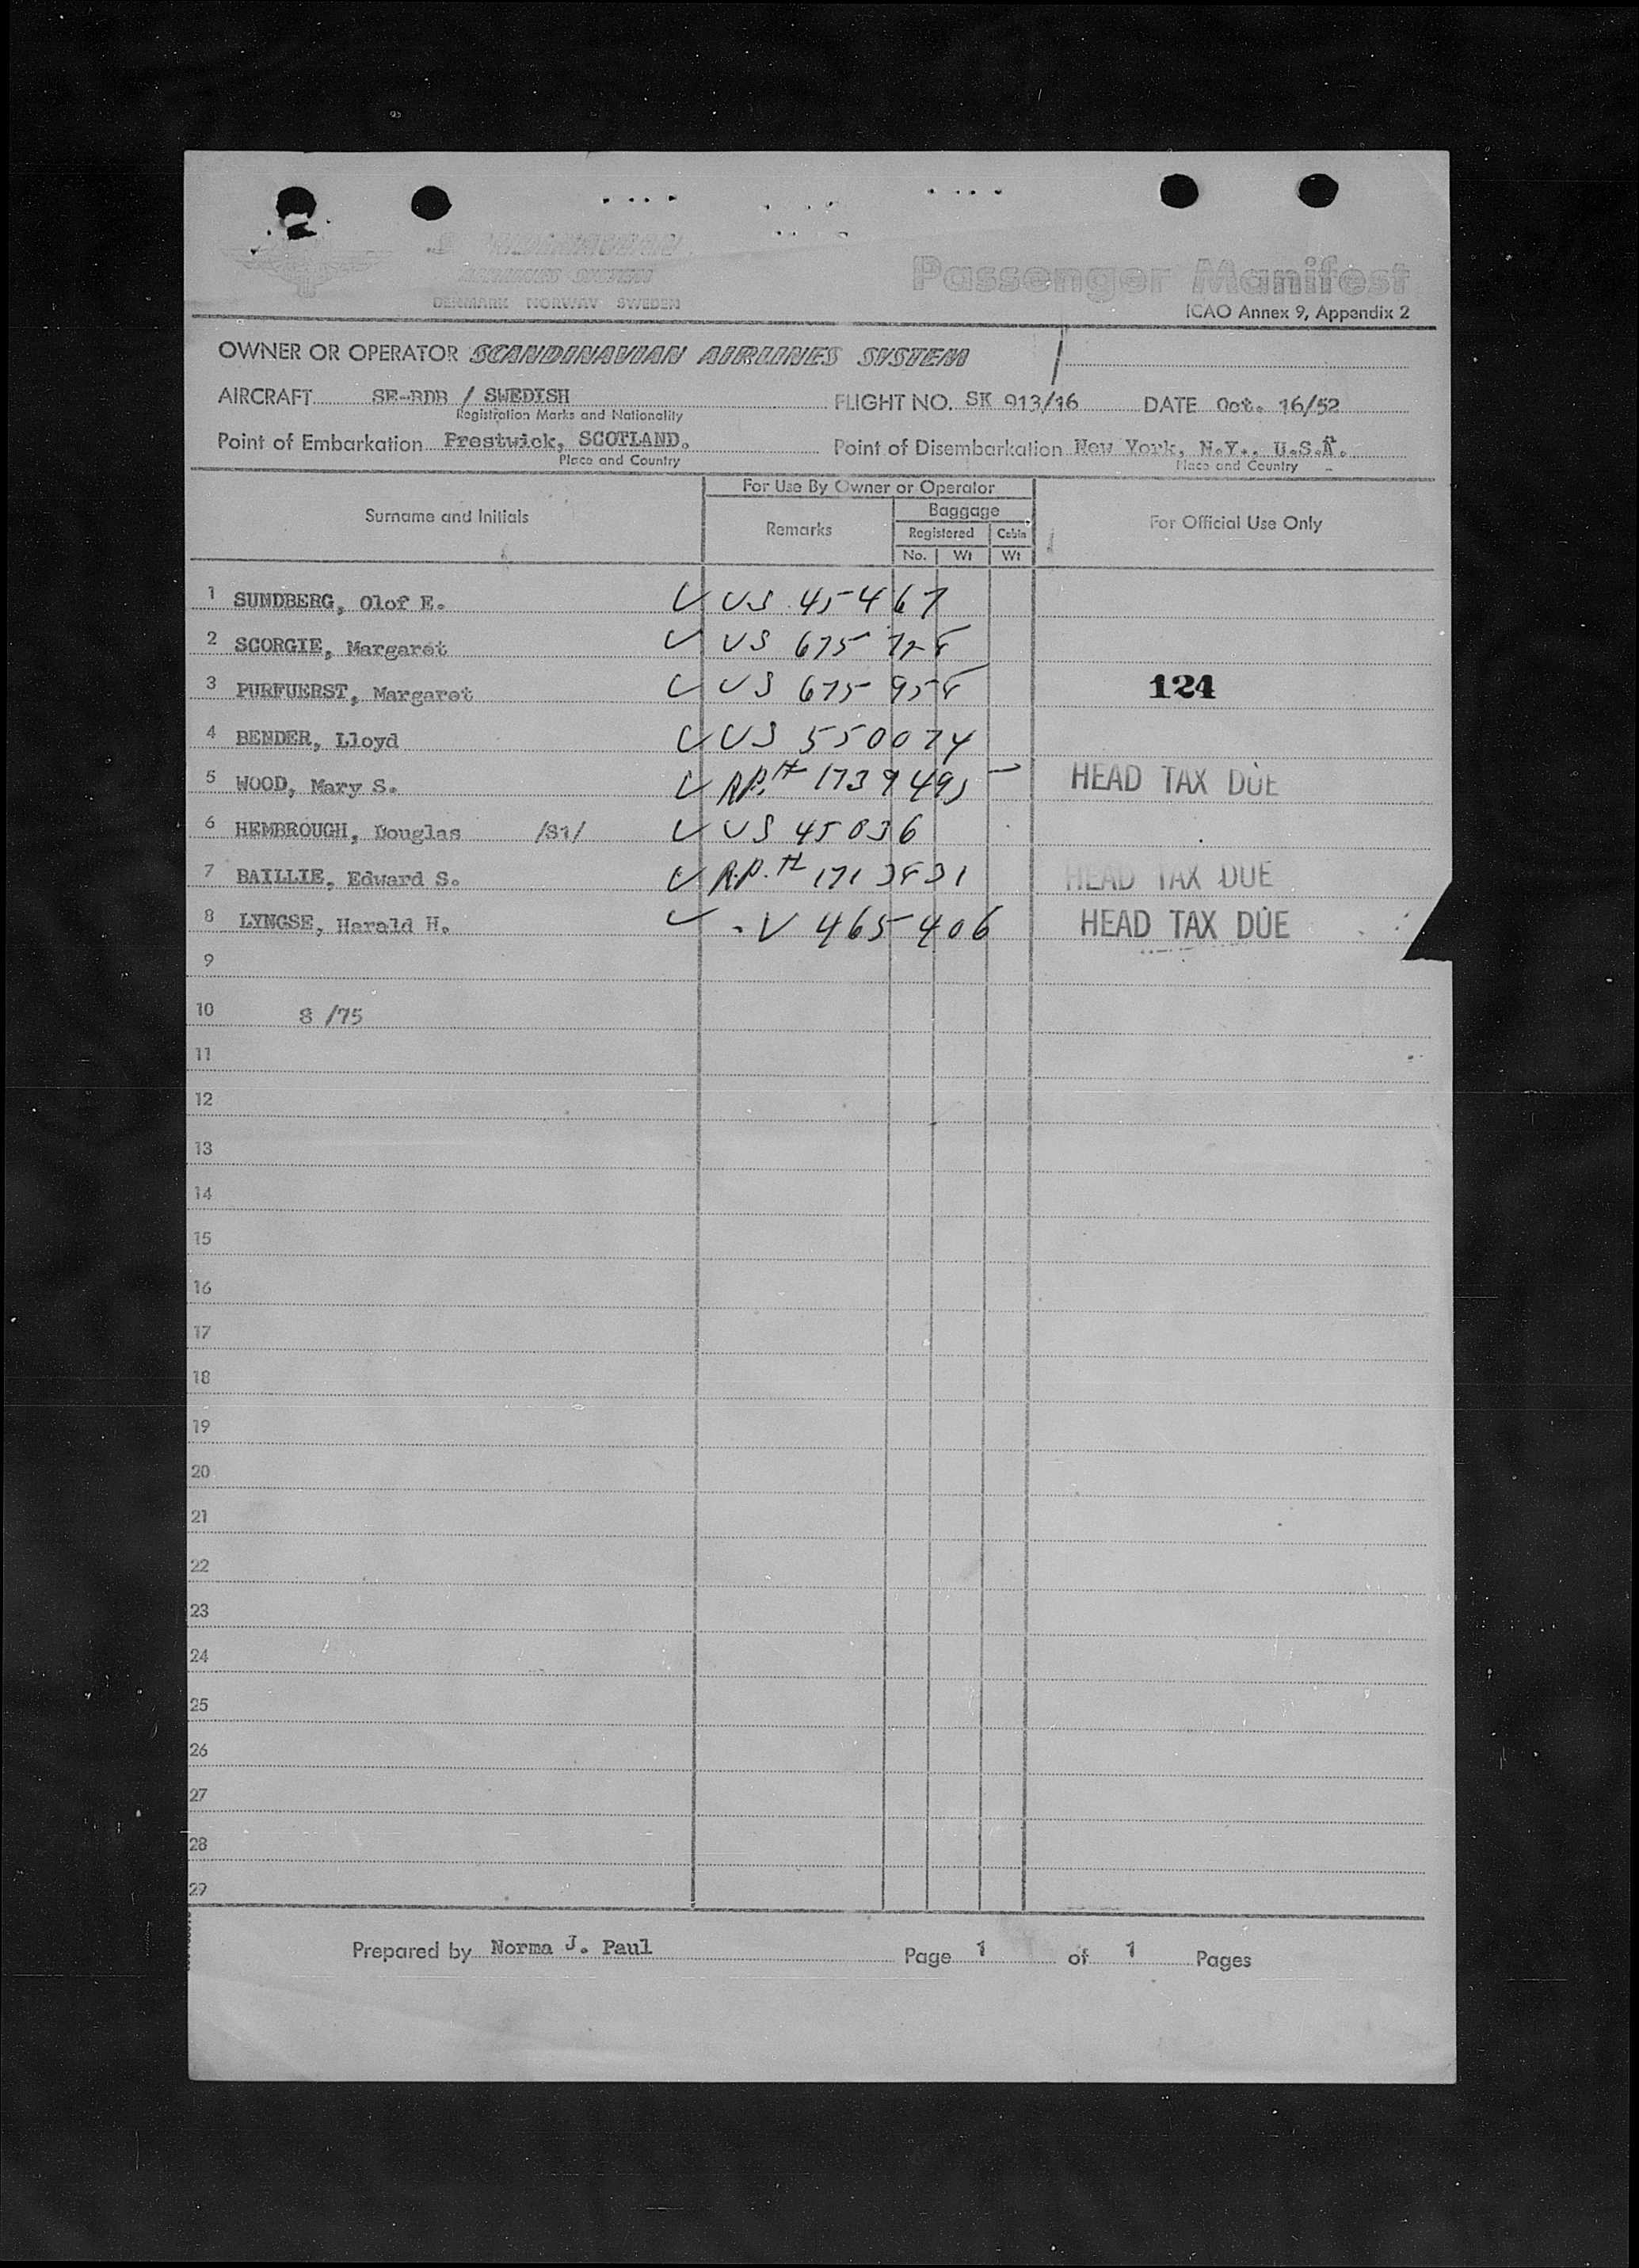 SCANDINAVIAN
AIRLINES SYSTEM
DENMARK NORWAY SWEDEN
Passenger Manifest
ICAO Annex 9, Appendix 2
OWNER OR OPERATOR SCANDINAVIAN AIRLINES SYSTEM
AIRCRAFT SE-BDB / SWEDISH FLIGHT NO. SK 913/16 DATE Oct. 16/52
Registration Marks and Nationality
Point of Embarkation Prestwick, SCOTLAND. Point of Disembarkation New York, N.Y., U.S.A.
Place and Country Place and Country
For Use By Owner or Operator
Surname and Initials Remarks Baggage For Official Use Only
Registered Cabin
No. Wt Wt
1 SUNDBERG, Olof E. ✓ US 45467
2 SCORGIE, Margaret ✓ US 675
3 PURFUERST, Margaret ✓ US 675 958 124
4 BENDER, Lloyd ✓ US 550074
5 WOOD, Mary S. ✓ R.P.# 1739495 HEAD TAX DUE
6 HEMBROUGH, Douglas /S1/ ✓ US 45036
7 BAILLIE, Edward S. ✓ R.P.# 1713831 HEAD TAX DUE
8 LYNGSE, Harald H. ✓ V 465406 HEAD TAX DUE
9
10 8 /75
11
12
13
14
15
16
17
18
19
20
21
22
23
24
25
26
27
28
29
Prepared by Norma J. Paul Page 1 of 1 Pages